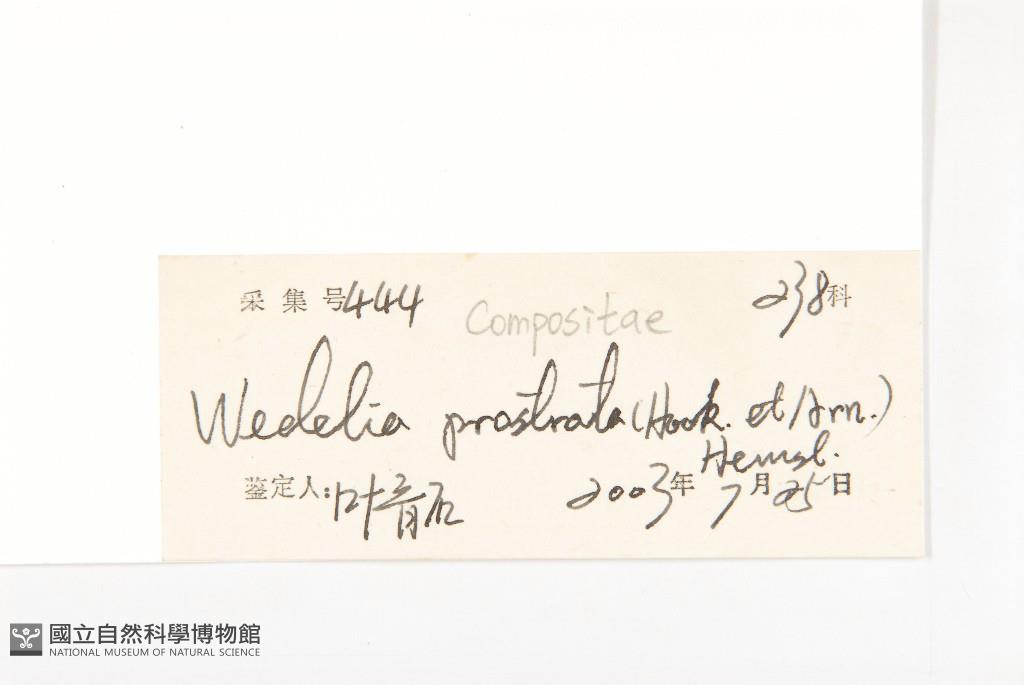 采集号 444 Compositae 238科
Wedelia prostrata (Hook. et Arn.)
Hemsl.
鉴定人: 叶育石 2003年 7月 25日
國立自然科學博物館
NATIONAL MUSEUM OF NATURAL SCIENCE